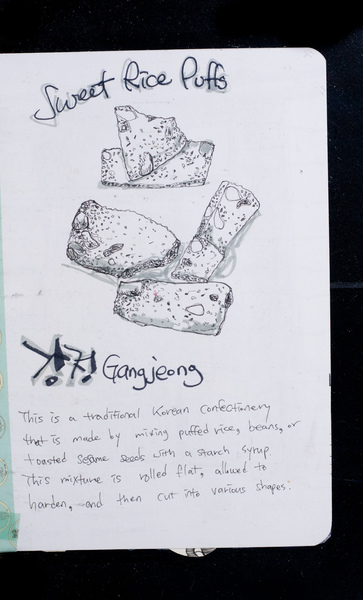 Sweet Rice Puffs
강정 Gangjeong
This is a traditional Korean confectionery
that is made by mixing puffed rice, beans, or
toasted sesame seeds with a starch syrup.
This mixture is rolled flat, allowed to
harden, and then cut into various shapes.